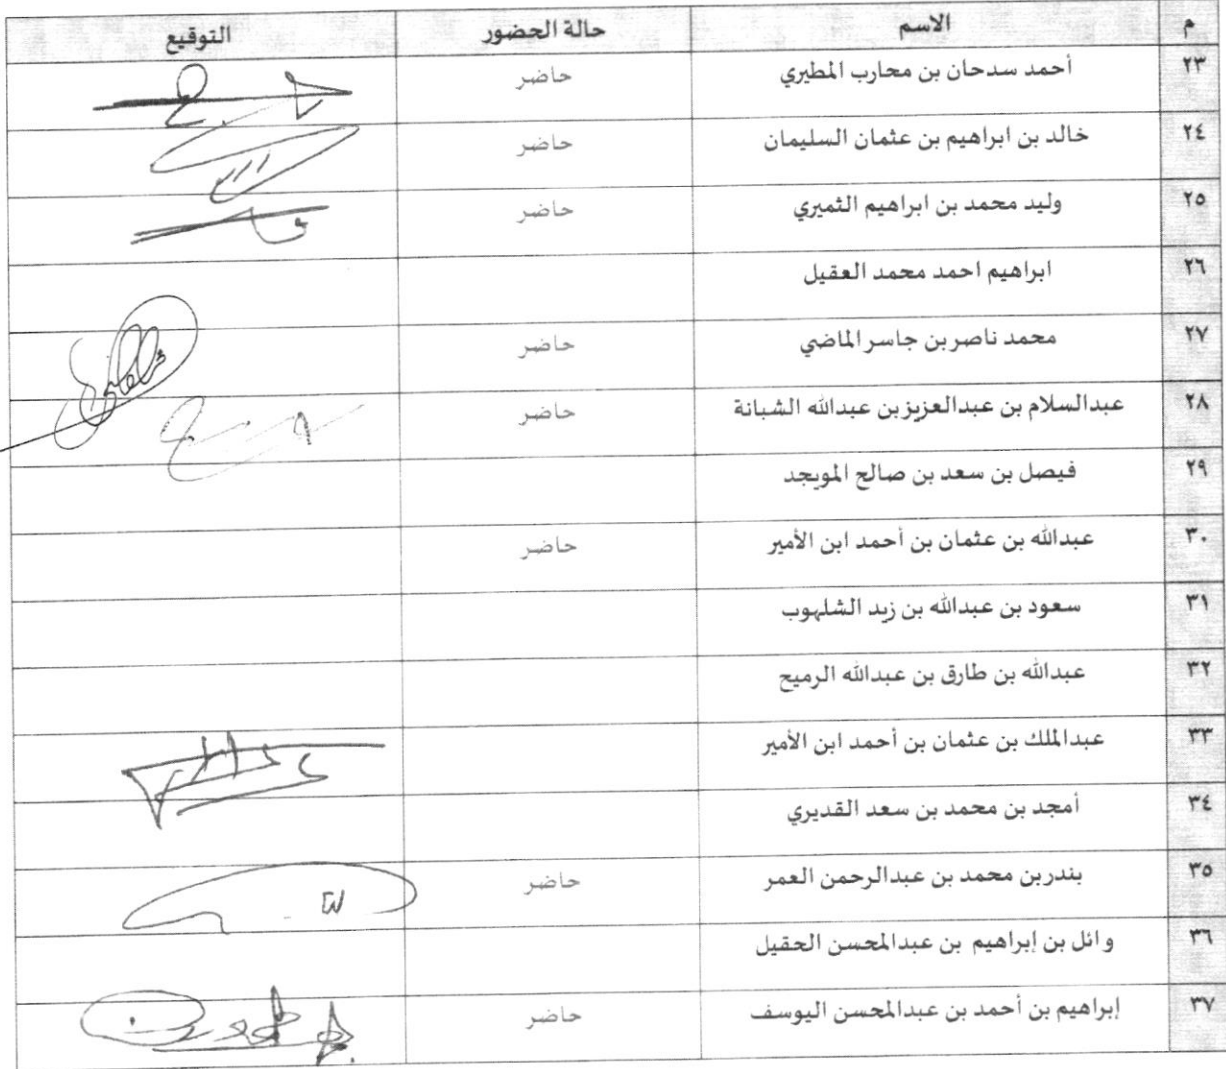 م الاسم حالة الحضور التوقيع
٢٣ أحمد سدحان بن محارب المطيري حاضر
٢٤ خالد بن ابراهيم بن عثمان السليمان حاضر
٢٥ وليد محمد بن ابراهيم الثميري حاضر
٢٦ ابراهيم احمد محمد العقيل
٢٧ محمد ناصر بن جاسر الماضي حاضر
٢٨ عبدالسلام بن عبدالعزيز بن عبدالله الشبانة حاضر
٢٩ فيصل بن سعد بن صالح المويجد
٣٠ عبدالله بن عثمان بن أحمد ابن الأمير حاضر
٣١ سعود بن عبدالله بن زيد الشلهوب
٣٢ عبدالله بن طارق بن عبدالله الرميح
٣٣ عبدالملك بن عثمان بن أحمد ابن الأمير
٣٤ أمجد بن محمد بن سعد القديري
٣٥ بندر بن محمد بن عبدالرحمن العمر حاضر
٣٦ وائل بن إبراهيم بن عبدالمحسن الحقيل
٣٧ إبراهيم بن أحمد بن عبدالمحسن اليوسف حاضر